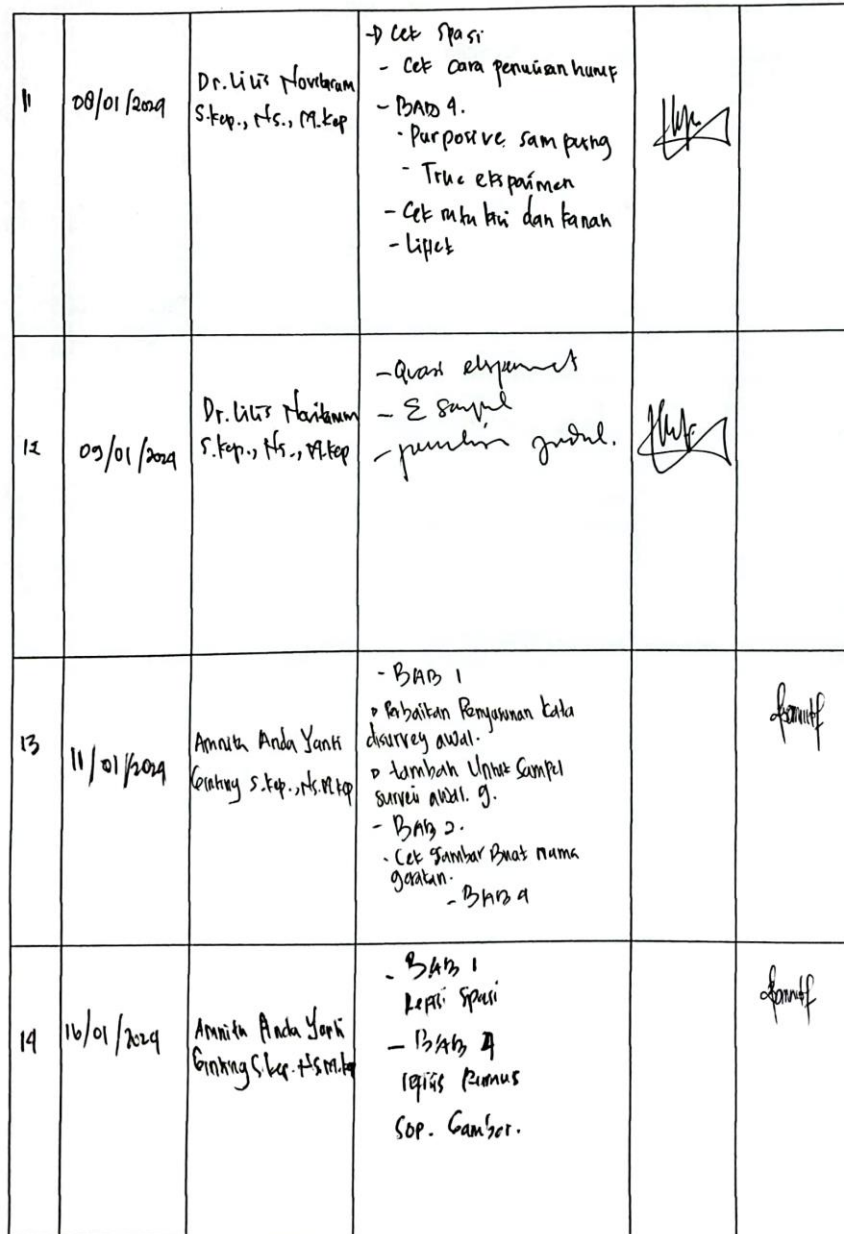 11
08/01/2024
Dr. Lilis Novitarum
S.kep., Ns., M.kep
Cek Spasi
- Cek Cara penulisan huruf
- BAB 4.
- Purposive sampling
- True eksperimen
- Cek ratu kiri dan kanan
12
09/01/2024
Dr. Lilis Novitarum
S.kep., Ns., M.kep
- Quasi
- Σ Sampel
- penulisan judul.
13
11/01/2024
Amnita Anda Yanti
Ginting S.kep., Ns.M.kep
- BAB 1
Perbaikan Penyusunan kata
disurvey awal.
tambah Untuk Sampel
survei awal. 9.
- BAB 2.
- Cek gambar Buat nama
gerakan.
- BAB 4
14
16/01/2024
Amnita Anda Yanti
Ginting S.kep. Ns.M.kep
- BAB 1
Spasi
- BAB 4
Rumus
Sop. Gambar.